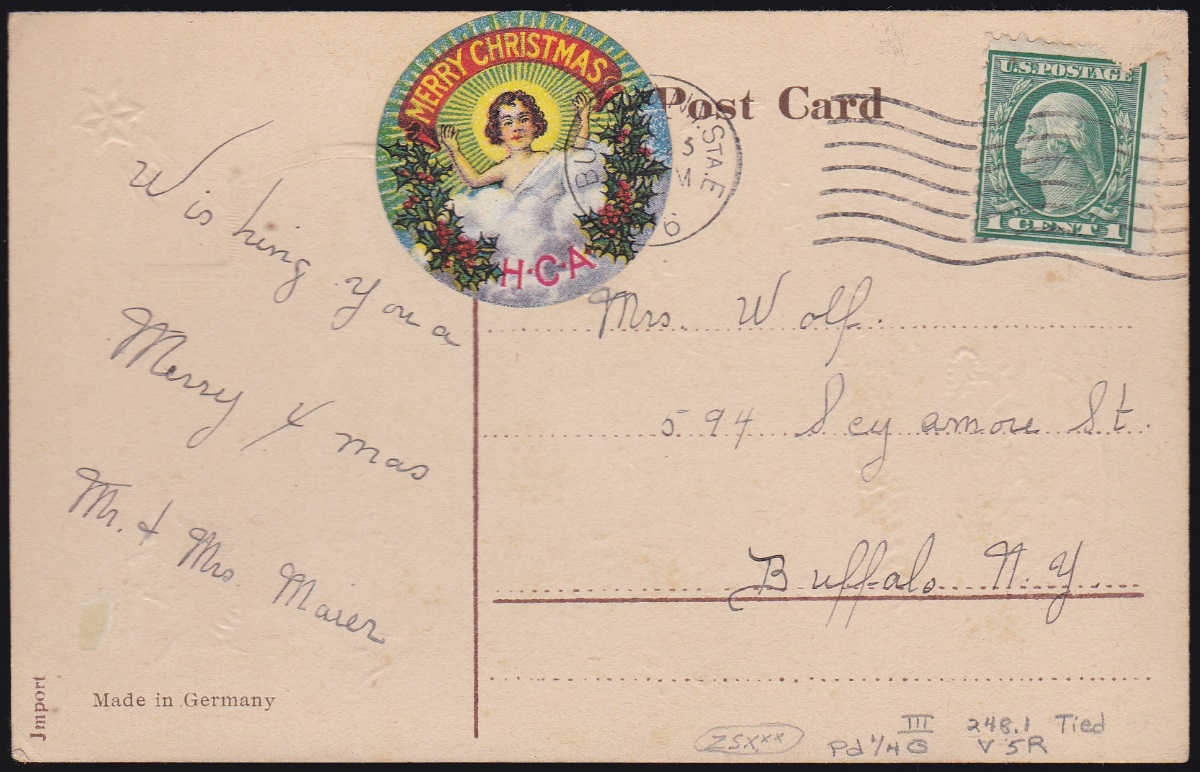 MERRY CHRISTMAS
H·C·A
Post Card
U.S. POSTAGE
1 CENT 1
STA.E
5
M
6
Wishing you a
Merry Xmas
Mr. & Mrs. Maier
Mrs. Wolf.
594 Scyamore St.
Buffalo N.Y.
Made in Germany
Import
ZSXxx
III 248.1 Tied
Pd 1/4 G V 5R